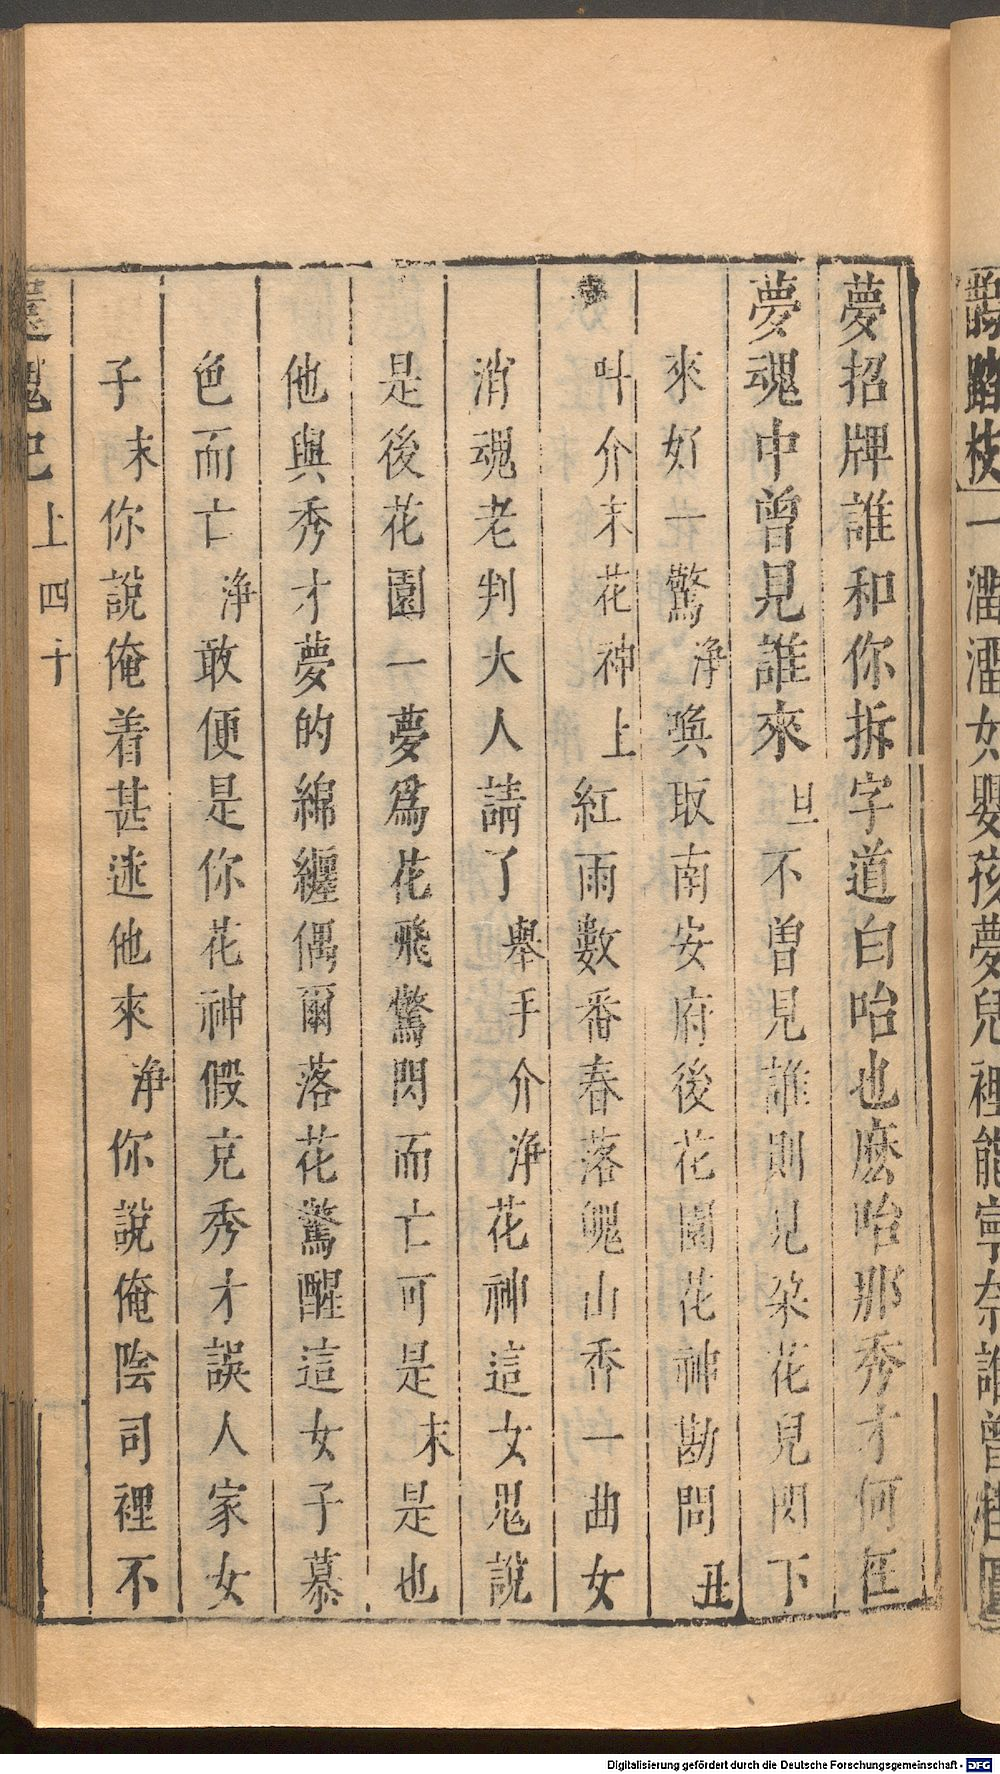 夢招牌誰和你拆字道白哈也麽哈那秀才何在
夢魂中曾見誰來旦不曾見誰則見朶花兒閃下
來好一驚淨喚取南安府後花園花神勘問丑
叫介末花神上紅雨數番春落魄山香一曲女
消魂老判大人請了舉手介淨花神這女鬼說
是後花園一夢爲花飛驚閃而亡可是末是也
他與秀才夢的綿纏偶爾落花驚醒這女子慕
色而亡淨敢便是你花神假充秀才誤人家女
子末你說俺着甚迷他來淨你說俺陰司裡不
還魂記 上 四十